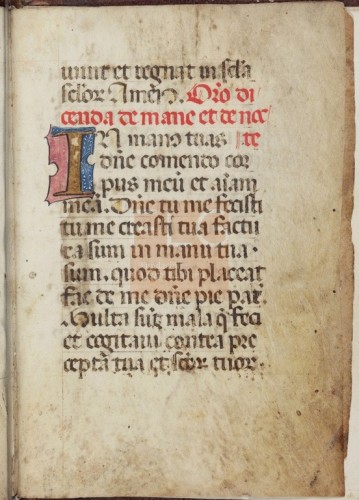 uiuit et regnat in scl'a
scl'or Amen. Oro di
cenda de mane et de noc
IN mano tuas te
dñe comendo cor
pus meũ et aĩam
meã. Dñe tu me fecisti
tu me creasti tua factu
ra sum in manu tua
sum. quod tibi placeat
fac de me dñe pie pat̃.
Multa sũt mala q̃ feci
et cogitaui contra pre
cepta tua et scl'or tuor.